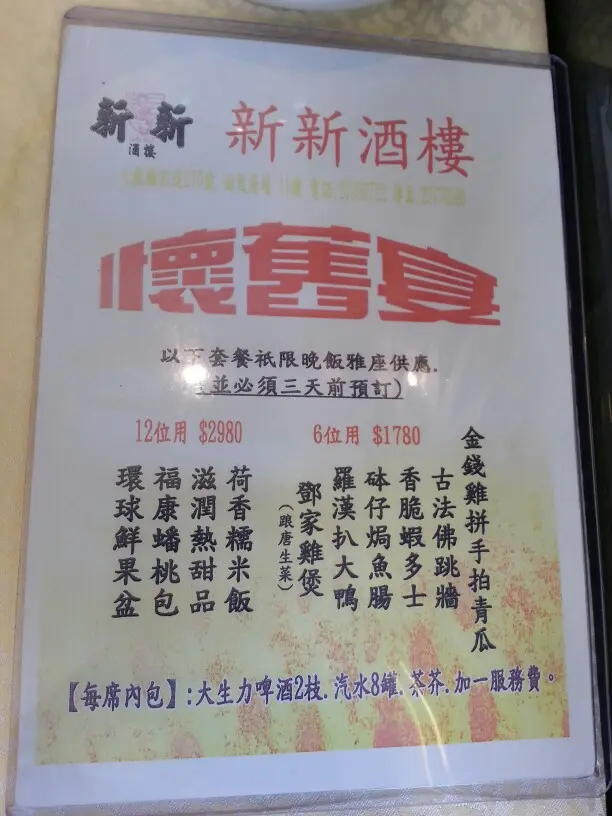 新新
酒樓
新新酒樓
懷舊宴
以下套餐祇限晚飯雅座供應.
並必須三天前預訂)
12位用 $2980
6位用 $1780
金錢雞拼手拍青瓜
古法佛跳牆
香脆蝦多士
砵仔焗魚腸
羅漢扒大鴨
鄧家雞煲
(跟唐生菜)
荷香糯米飯
滋潤熱甜品
福康蟠桃包
環球鮮果盆
【每席內包】:大生力啤酒2枝.汽水8罐.茶芥.加一服務費。